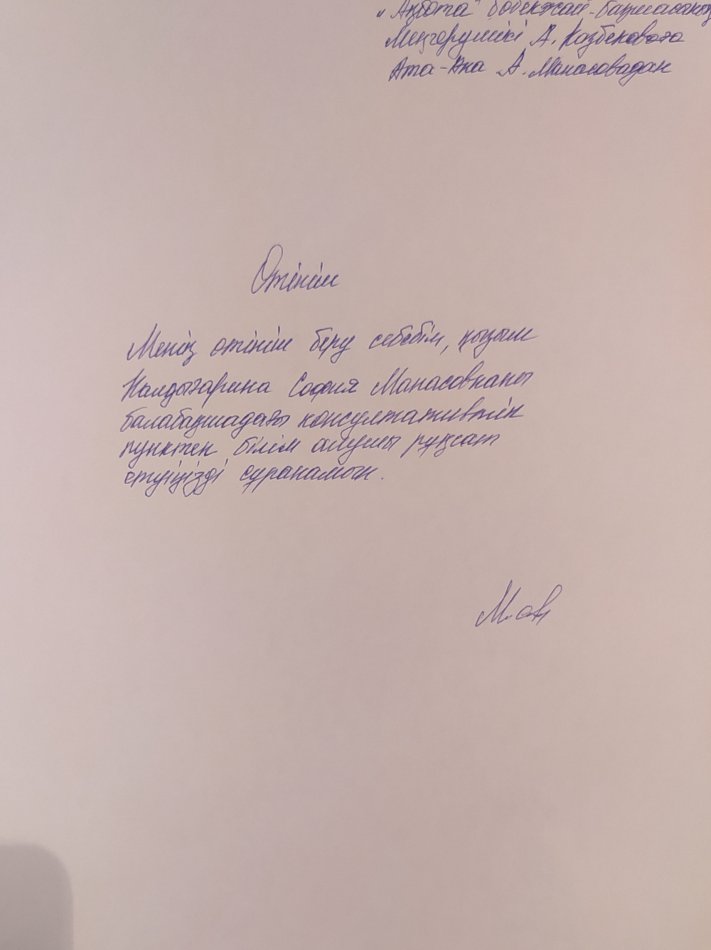 "Ақбота" бөбекжай-бақшасының
Меңгерушісі А. Казбековаға
Ата-Ана А. Манасовадан
Өтініш
Менің өтініш беру себебім, қызым
Калдыгарина София Манасовнаны
балабақшадағы консультативтік
пунктен білім алушы рұқсат
етуіңізді сұранамын.